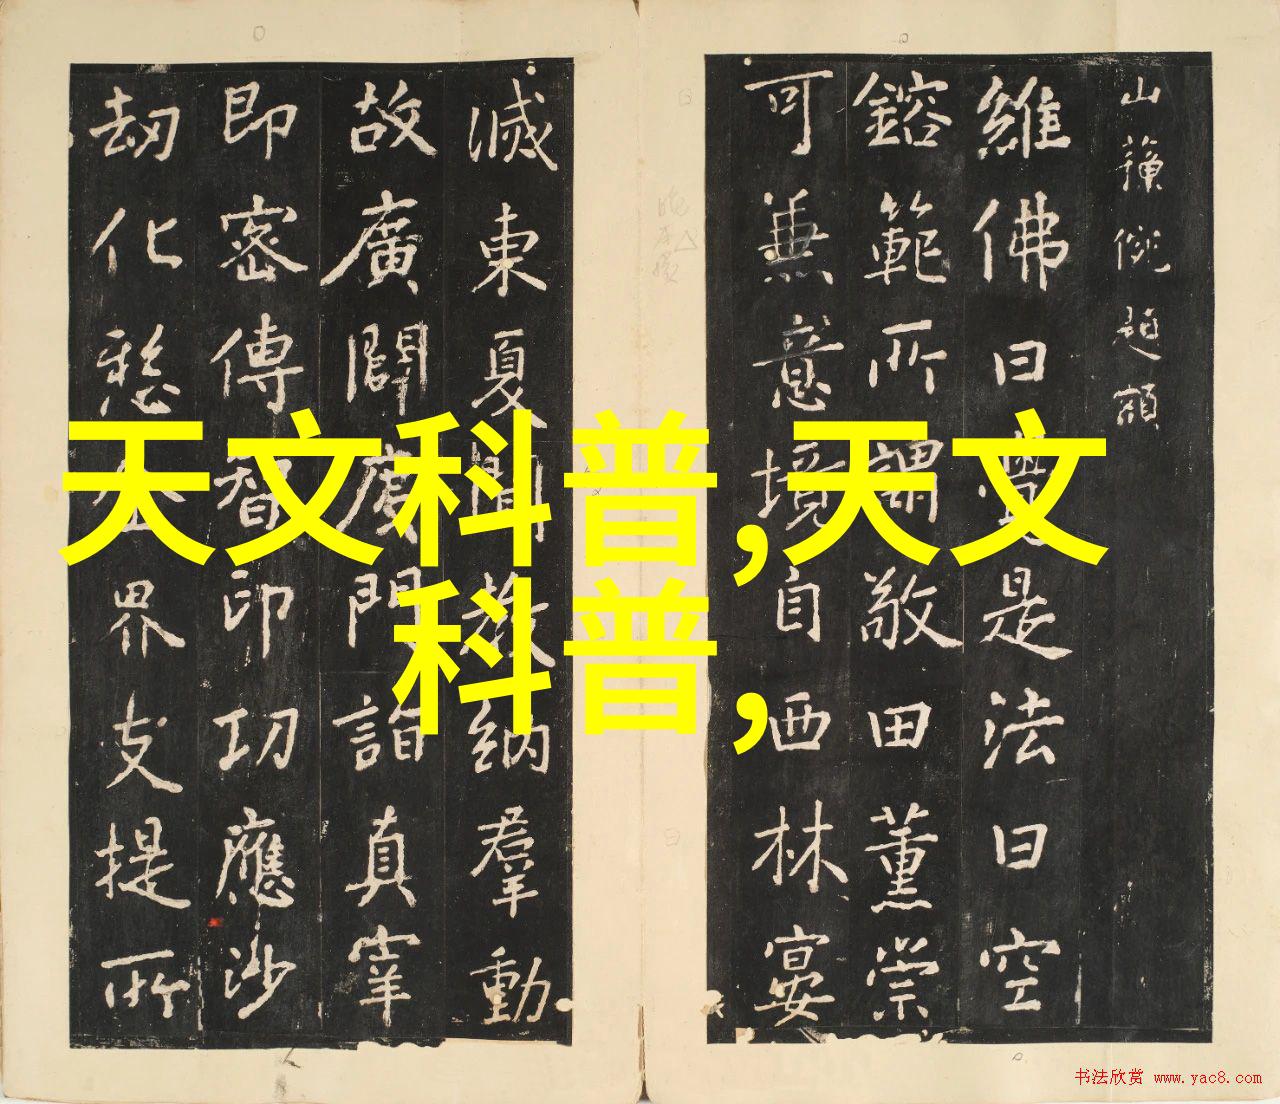 山蘋倪題額
維佛曰覺是法曰空
鎔範所謂敬田薰崇
可兼意境自西林宴
滅東夏聞教納羣動
故廣闢度門詣真宰
即密傳智印功應沙
劫化界支提所
天文科普,天文
科普,
书法欣赏 www.yac8.com